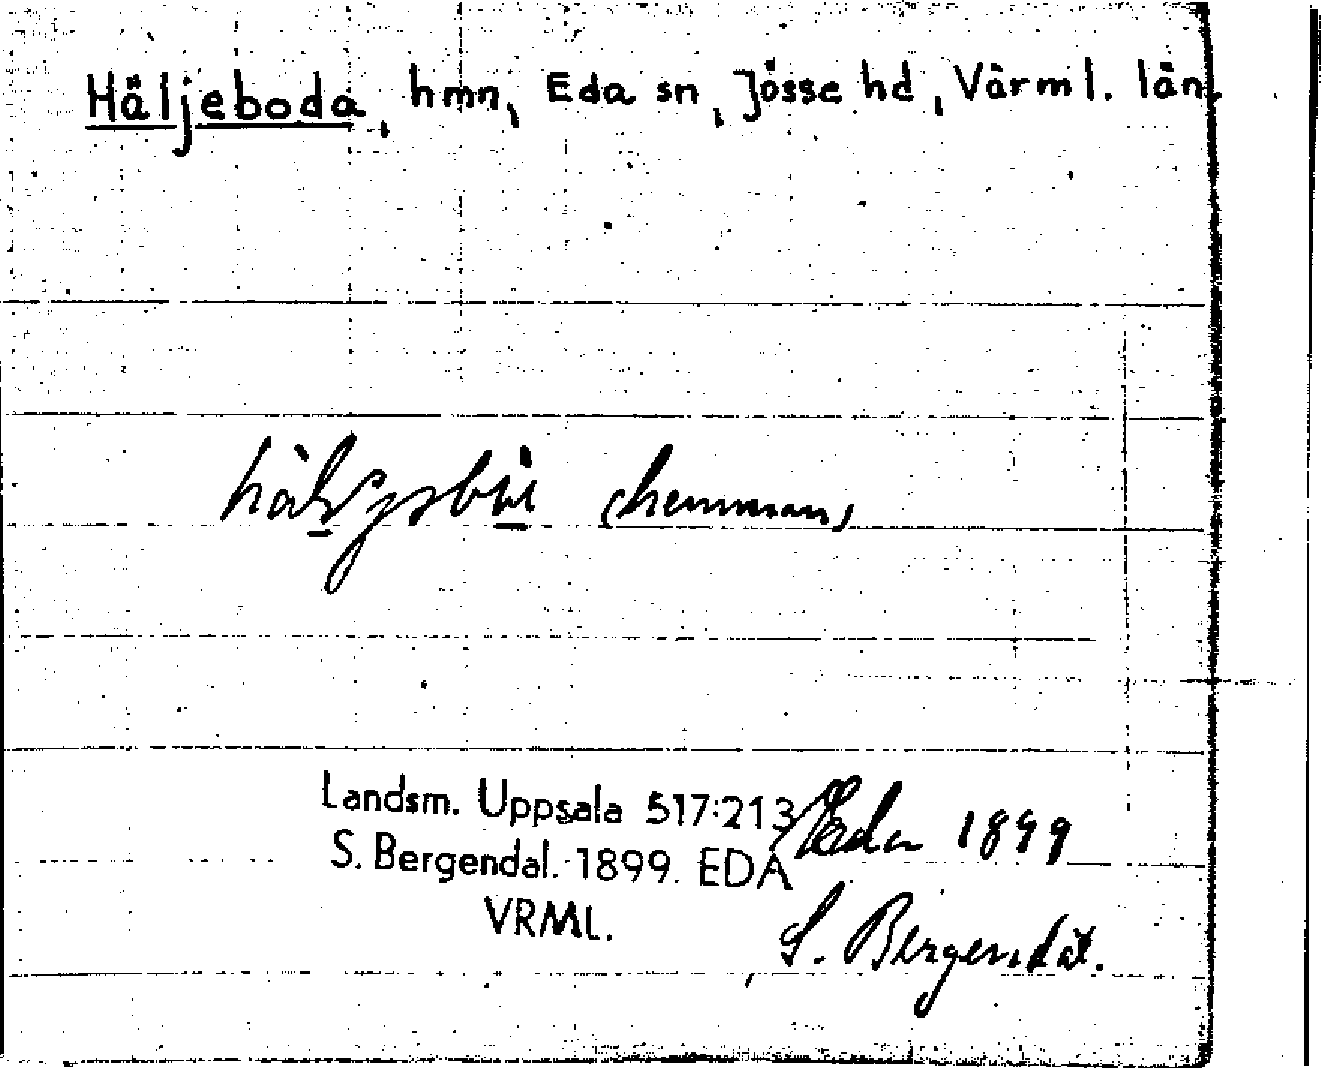 Häljeboda, hmn, Eda sn, Jösse hd, Värml. län.
(hemman)
Landsm. Uppsala 517:213 Eda 1899
S. Bergendal. 1899. EDA
VRML.
S. Bergendal.